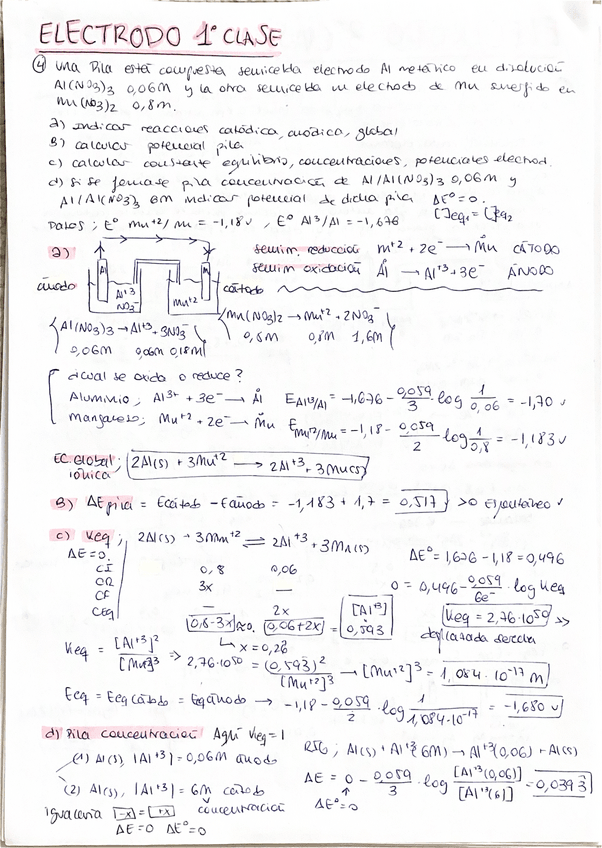 ELECTRODO 1º CLASE
④ una Pila está compuesta semicelda electrodo Al metálico en disolución
Al(NO₃)₃ 0,06M y la otra semicelda un electrodo de Mn sumergido en
Mn(NO₃)₂ 0,8M.
a) indicar reacciones catódica, anódica, global
B) calcular potencial pila
c) calcular constante equilibrio, concentraciones, potenciales electrod.
d) si se formase pila concentración de Al/Al(NO₃)₃ 0,06M y
Al/Al(NO₃)₃ 6M indicar potencial de dicha pila
ΔE°=0.
[ ]eq₁ = [ ]eq₂
Datos; E° Mn⁺²/Mn = -1,18v, E° Al³/Al = -1,676
a)
semirr. reducción m⁺² + 2e⁻ → Mn CÁTODO
semirr oxidación Al → Al⁺³ + 3e⁻ ÁNODO
ánodo
Al
Al⁺³
NO₃⁻
Mn⁺²
cátodo
Al(NO₃)₃ → Al⁺³ + 3NO₃⁻
0,06M 0,06M 0,18M
Mn(NO₃)₂ → Mn⁺² + 2NO₃⁻
0,8M 0,8M 1,6M
¿cuál se oxida o reduce?
Aluminio; Al³⁺ + 3e⁻ → Al E Al³/Al = -1,676 - 0,059/3 · log 1/0,06 = -1,70 v
Manganeso; Mn⁺² + 2e⁻ → Mn E Mn²/Mn = -1,18 - 0,059/2 log 1/0,8 = -1,183v
EC. Global; 2Al(s) + 3Mn⁺² → 2Al⁺³ + 3Mn(s)
iónica
B) ΔE pila = Ecátodo - Eánodo = -1,183 + 1,7 = 0,517 >0 Espontáneo ✓
c) Keq; 2Al(s) + 3Mn⁺² ⇌ 2Al⁺³ + 3Mn(s)
ΔE° = 1,676 - 1,18 = 0,496
ΔE=0.
CI 0,8 0,06
CR 3x —
CF — 2x
Ceq 0,8-3x ≈0. 0,06+2x = [Al³] 0,593
↳ x = 0,26
0 = 0,496 - 0,059/6e⁻ · log Keq
Keq = 2,76·10⁵⁰ >>
desplazada derecha
Keq = [Al⁺³]²/[Mn²]³ ⇒ 2,76·10⁵⁰ = (0,593)²/[Mn⁺²]³ → [Mn⁺²]³ = 1,084·10⁻¹⁷ M
Ecq = Eeq cátodo = Eq ánodo → -1,18 - 0,059/2 · log 1/1,084·10⁻¹⁷ = -1,680 v
d) Pila concentración Aquí Keq=1
(1) Al(s), |Al⁺³| = 0,06M ánodo
(2) Al(s), |Al⁺³| = 6M cátodo
Al(s) + Al⁺³(6M) → Al⁺³(0,06) + Al(s)
ΔE = 0 - 0,059/3 · log [Al⁺³(0,06)]/[Al⁺³(6)] = 0,0393
ΔE°=0
igualaría [-x] = [+x] concentración
ΔE=0 ΔE°=0